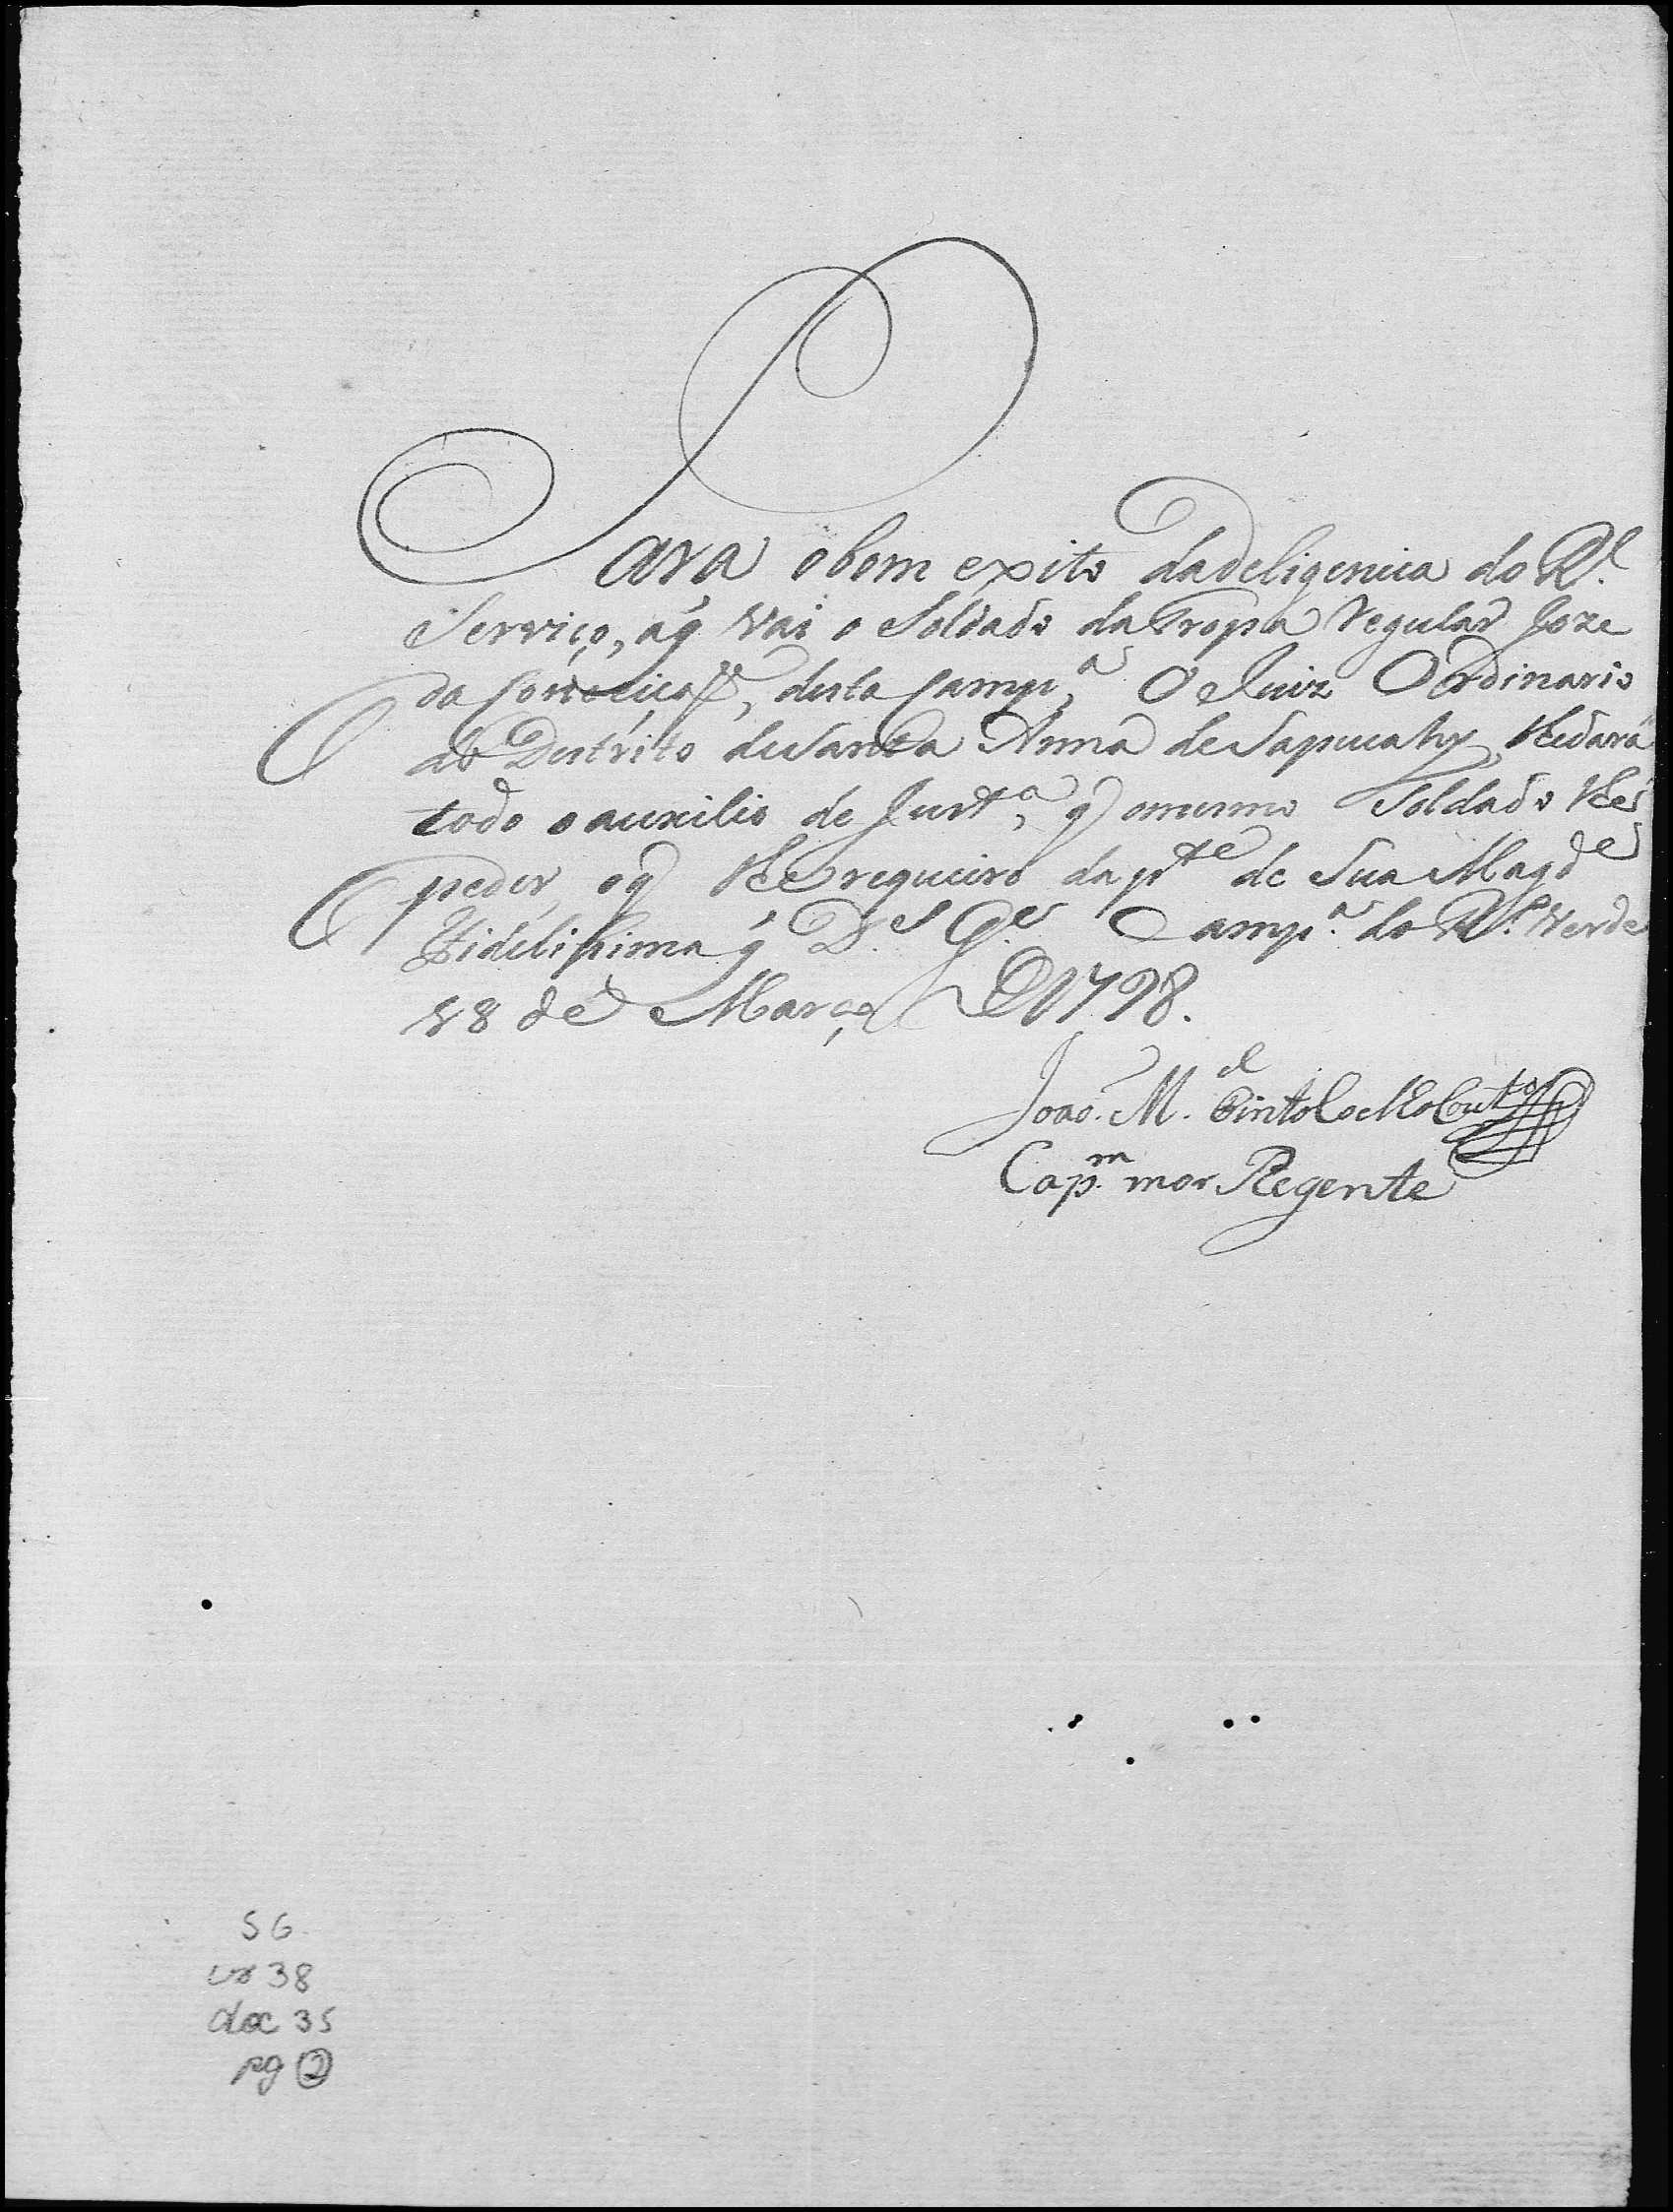 Para obom exito dadeligencia do R.l
Serviço, áq̃ vai o Soldado daTropa regular Joze
da Conceiçaõ, desta Camp.a O Juiz Ordinario
do Destrito deSanta Anna deSapucahy, lhedará
todo oauxilio de Just.a, q̃ omesmo Soldado lhe
pedir, oq̃ lhe requeiro dap.te de Sua Magd.e
Fidelissima q̃ D.s G.e Camp.a do R.o Verde
18 de Março de 1798.
Joaõ. M.el Pinto Coelho Cout.o
Cap.m mor Regente
SG
cx 38
doc 35
pg 2